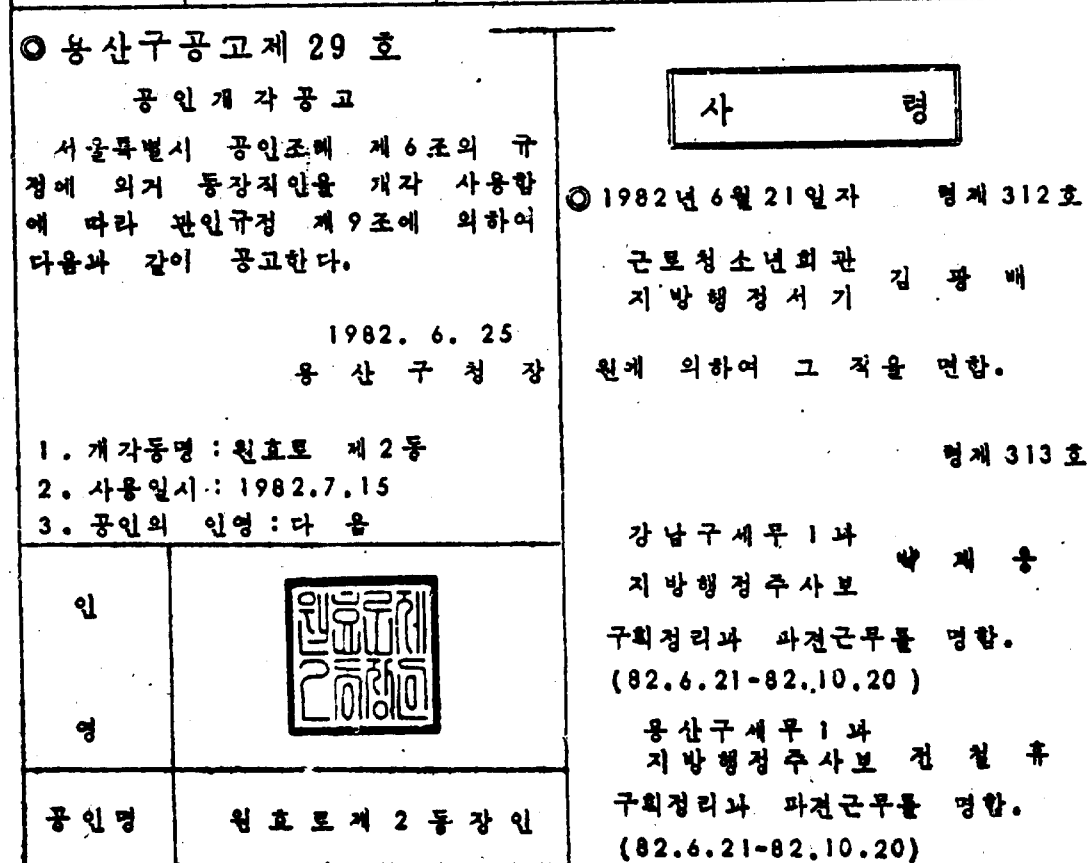 ◎ 용산구공고제 29 호
공인개각공고
서울특별시 공인조례 제6조의 규
정에 의거 동장직인을 개각 사용함
에 따라 관인규정 제9조에 의하여
다음과 같이 공고한다.
1982. 6. 25
용 산 구 청 장
1. 개각동명 : 원효로 제2동
2. 사용일시 : 1982.7.15
3. 공인의 인영 : 다 음
인
영
공인명 원효로제2동장인
사 령
◎ 1982년 6월 21일자 령제 312호
근로청소년회관
지방행정서기 김 광 배
원에 의하여 그 직을 면함.
령제 313호
강남구세무1과
지방행정주사보 박 제 웅
구획정리과 파견근무를 명함.
(82.6.21-82.10.20)
용산구세무1과
지방행정주사보 전 철 휴
구획정리과 파견근무를 명함.
(82.6.21-82.10.20)